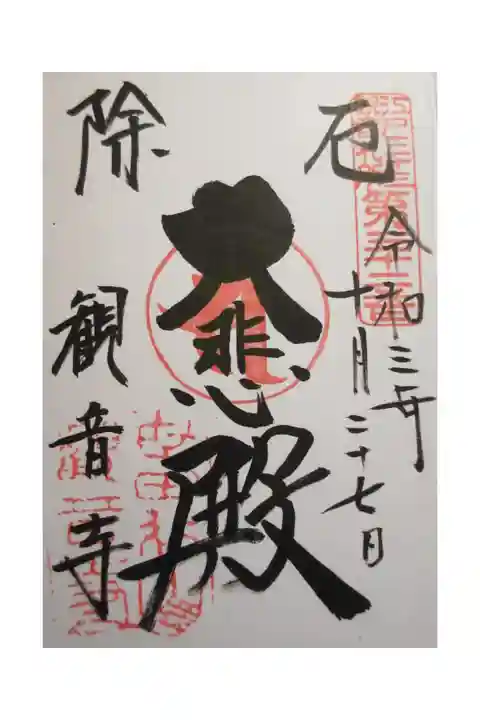 厄
令和三年
十月二十七日
大悲殿
除
観音寺